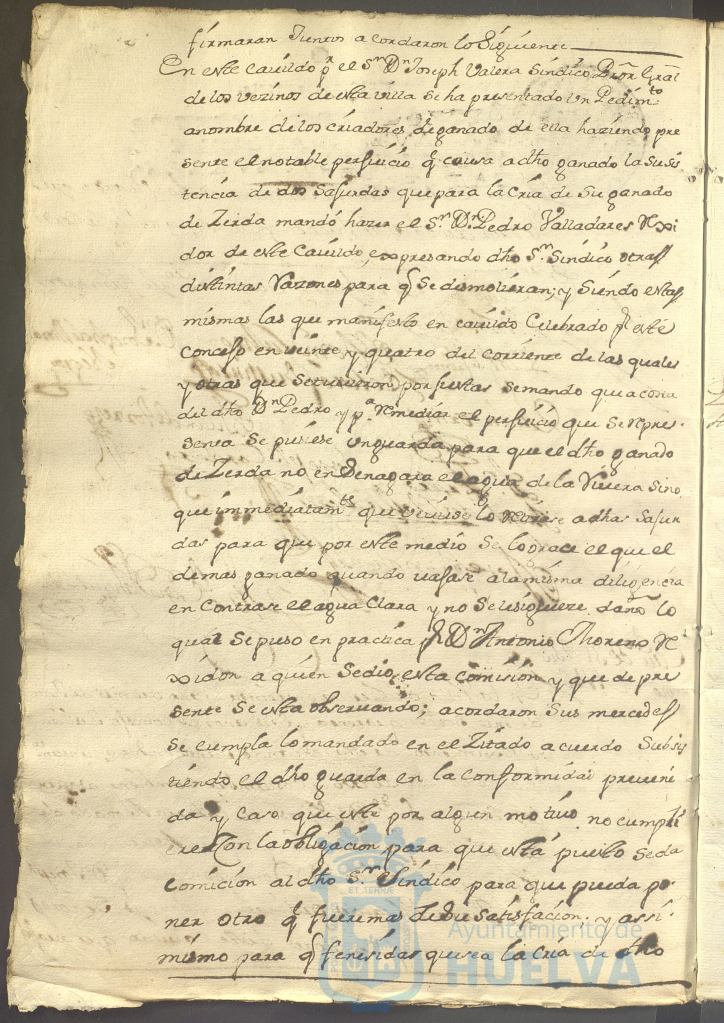 firmaran Juntos acordaron lo Siguiente
En este Cavildo pr el Sr. Dn Joseph Valera Sindico Pror Gral
de los vezinos de esta villa Se ha presentado Un Pedimto
anombre de los criadores de ganado de ella haziendo pre
sente el notable perjuicio q causa adho ganado la Susis
tencia de dos Safurdas que para la Cria de Su ganado
de Zerda mandó hazer el Sr. Dn. Pedro Valladares Rexi
dor de este Cavildo, expresando dho Sr. Sindico otras
distintas Razones para q Se dismolieran; y Siendo estas
mismas las que manifesto en cavildo Celebrado pr este
Consejo en veinte y quatro del corriente de las quales
y otras que Setuvieron por justas Semando que acosta
del dho Dn Pedro y pa Remediar el perjuicio que Se repre
senta Se pusiese un guarda para que el dho ganado
de Zerda no enSenagara el agua de la Rivera Sino
que immediatamte que viviese lo Retirase adhas Safur
das para que por este medio Se lograce el que el
demas ganado quando vajase ala misma diligencia
en Contrase el agua Clara y no Sele siguiere daño lo
qual Sepuso en practica pr Dn Antonio Moreno Re
xidor a quien Sedio esta comision y que de pre
sente Se esta observando; acordaron Sus mercedes
Se cumpla lo mandado en el Zitado acuerdo Subsis
tiendo el dho guarda en la Conformidad preveni
da y Caso que este por algun motivo no cumpli
ere Con la obligacion para que esta puesto Se da
Comicion al dho Sr. Sindico para que pueda po
ner otro q fuere mas de Su Satisfacion; y assi
mismo para q fenesidas que sea la Cria de dho
Ayuntamiento de
HUELVA